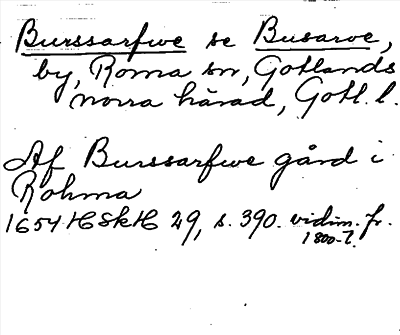 Burssarfwe se Busarve,
by, Roma sn, Gotlands
norra härad, Gotl. l.
Af Burssarfwe gård i
Rohma
1654 HSkH 29, s. 390. vidim. fr.
1800-t.